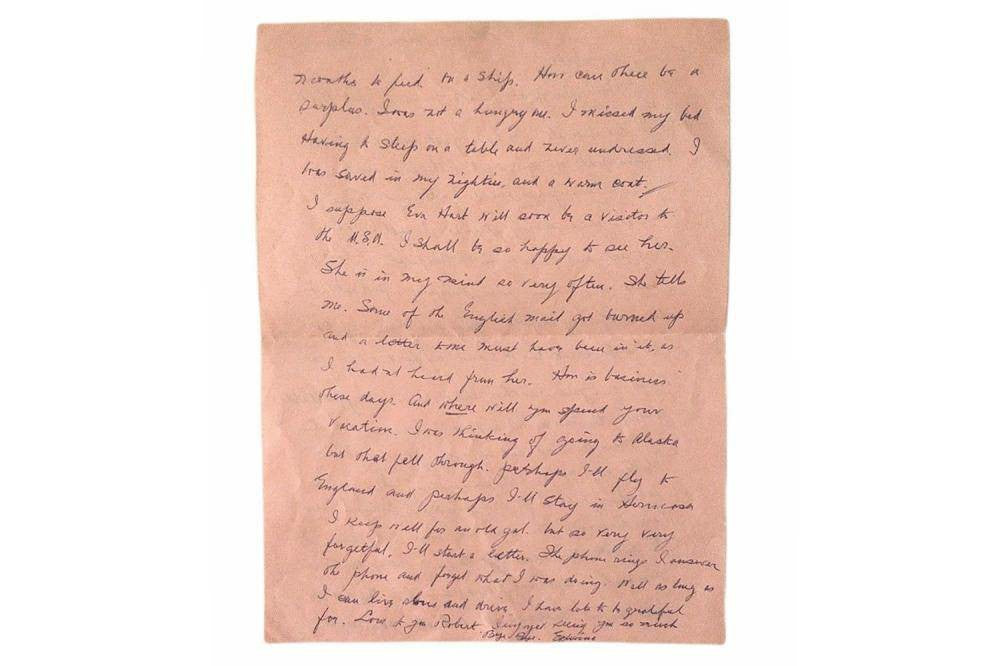 months to feed on a ship. How can there be a
surplus. I was not a hungry one. I missed my bed
Having to sleep on a table and never undressed. I
was saved in my nightie, and a warm coat.
I suppose Eva Hart will soon be a visitor to
the U.S.A. I shall be so happy to see her.
She is in my mind so very often. She tells
me. Some of the English mail got burned up
and a letter to me must have been in it, as
I hadnt heard from her. How is business
these days. And where will you spend your
Vacation. I was thinking of going to Alaska
but that fell through. perhaps I'll fly to
England and perhaps I'll stay in Hermosa
I keep well for an old gal. but so very very
forgetful, I'll start a letter. The phone rings I answer
the phone and forget what I was doing. Well as long as
I can live alone and drive I have lots to be grateful
for. Love to you Robert I enjoyed seeing you so much
Bye Bye. Edwina